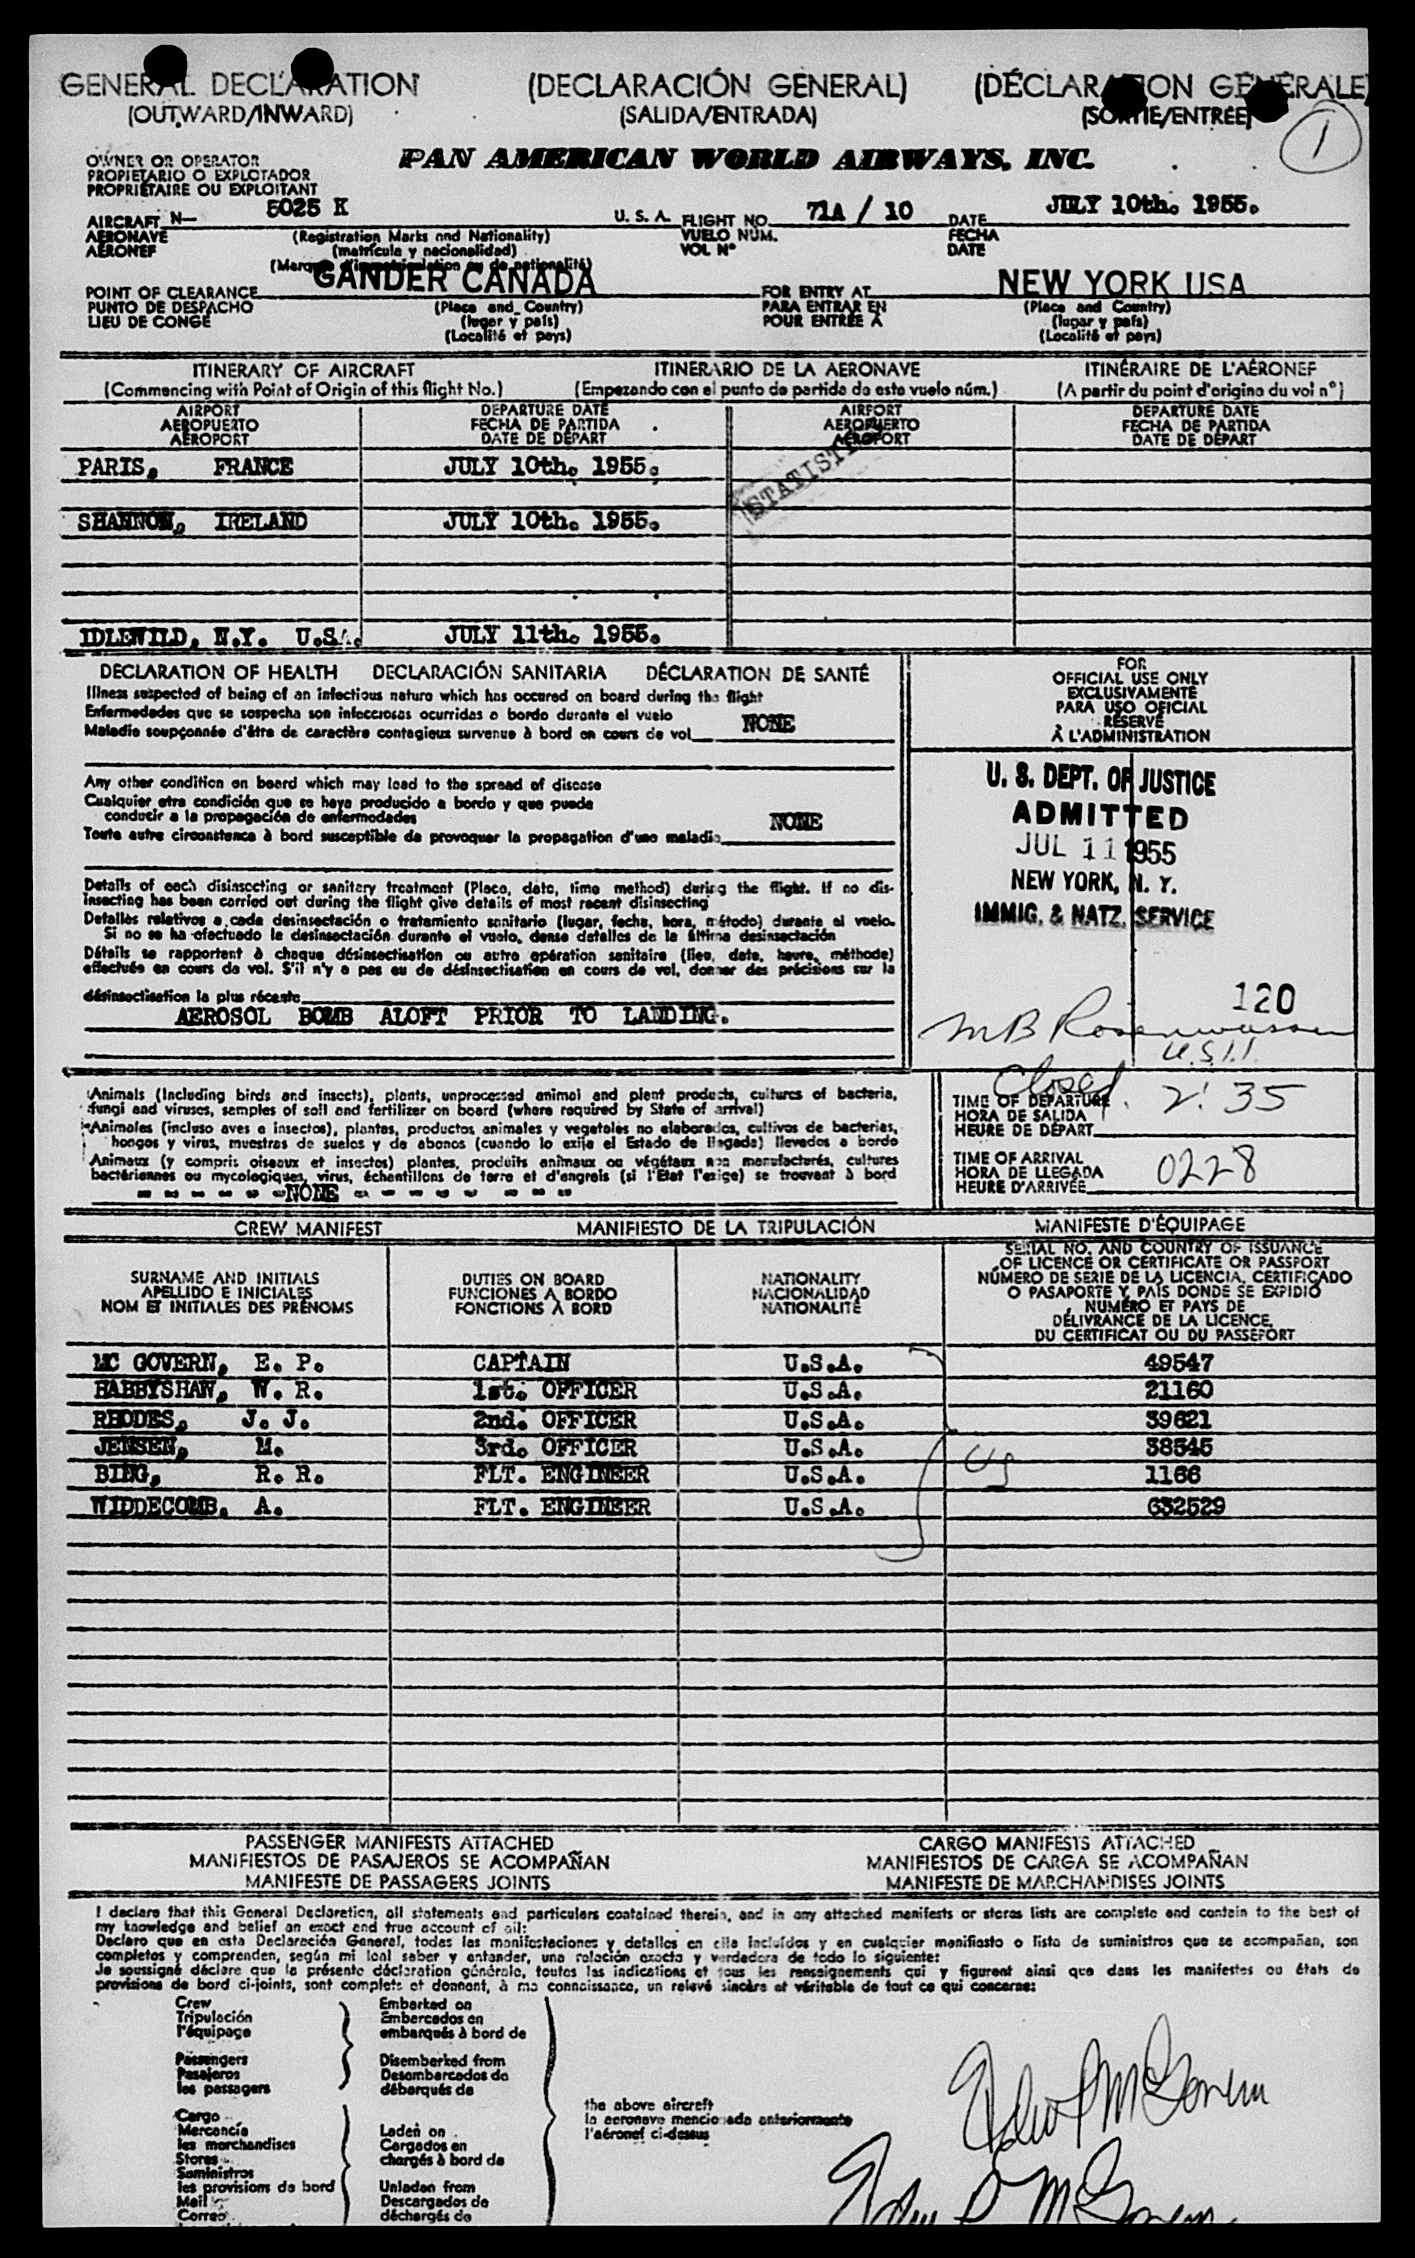 GENERAL DECLARATION (DECLARACIÓN GENERAL) (DÉCLARATION GÉNÉRALE)
(OUTWARD/INWARD) (SALIDA/ENTRADA) (SORTIE/ENTRÉE)
1
OWNER OR OPERATOR
PROPIETARIO O EXPLOTADOR
PROPRIÉTAIRE OU EXPLOITANT
PAN AMERICAN WORLD AIRWAYS, INC.
AIRCRAFT N— 5025 K U. S. A. FLIGHT NO. 71A / 10 DATE JULY 10th. 1955.
AERONAVE (Registration Marks and Nationality) VUELO NÚM. FECHA
AÉRONEF (matrícula y nacionalidad) VOL N° DATE
(Marques d'immatriculation ou de nationalité)
POINT OF CLEARANCE GANDER CANADA FOR ENTRY AT NEW YORK USA
PUNTO DE DESPACHO (Place and Country) PARA ENTRAR EN (Place and Country)
LIEU DE CONGÉ (lugar y país) POUR ENTRÉE À (lugar y país)
(Localité et pays) (Localité et pays)
ITINERARY OF AIRCRAFT ITINERARIO DE LA AERONAVE ITINÉRAIRE DE L'AÉRONEF
(Commencing with Point of Origin of this flight No.) (Empezando con el punto de partida de este vuelo núm.) (A partir du point d'origine du vol n°)
AIRPORT DEPARTURE DATE AIRPORT DEPARTURE DATE
AEROPUERTO FECHA DE PARTIDA AEROPUERTO FECHA DE PARTIDA
AÉROPORT DATE DE DÉPART AÉROPORT DATE DE DÉPART
PARIS, FRANCE JULY 10th. 1955.
STATISTI
SHANNON, IRELAND JULY 10th. 1955.
IDLEWILD, N.Y. U.S.A. JULY 11th. 1955.
DECLARATION OF HEALTH DECLARACIÓN SANITARIA DÉCLARATION DE SANTÉ
Illness suspected of being of an infectious nature which has occured on board during the flight
Enfermedades que se sospecha son infecciosas ocurridas a bordo durante el vuelo
Maladie soupçonnée d'être de caractère contagieux survenue à bord en cours de vol NONE
Any other condition on board which may lead to the spread of disease
Cualquier otra condición que se haya producido a bordo y que puede
conducir a la propagación de enfermedades
Toute autre circonstance à bord susceptible de provoquer la propagation d'une maladie NONE
Details of each disinsecting or sanitary treatment (Place, date, time method) during the flight. If no dis-
insecting has been carried out during the flight give details of most recent disinsecting
Detalles relativos a cada desinsectación o tratamiento sanitario (lugar, fecha, hora, método) durante el vuelo.
Si no se ha efectuado la desinsectación durante el vuelo, dense detalles de la última desinsectación
Détails se rapportant à chaque désinsectisation ou autre opération sanitaire (lieu, date, heure, méthode)
effectuée en cours de vol. S'il n'y a pas eu de désinsectisation en cours de vol, donner des précisions sur la
désinsectisation la plus récente
AEROSOL BOMB ALOFT PRIOR TO LANDING.
FOR
OFFICIAL USE ONLY
EXCLUSIVAMENTE
PARA USO OFICIAL
RÉSERVÉ
À L'ADMINISTRATION
U. S. DEPT. OF JUSTICE
ADMITTED
JUL 11 1955
NEW YORK, N. Y.
IMMIG. & NATZ. SERVICE
120
MB Rosenwasser
U.S.I.I.
Animals (Including birds and insects), plants, unprocessed animal and plant products, cultures of bacteria,
fungi and viruses, samples of soil and fertilizer on board (where required by State of arrival)
Animales (incluso aves e insectos), plantas, productos animales y vegetales no elaborados, cultivos de bacterias,
hongos y virus, muestras de suelos y de abonos (cuando lo exija el Estado de llegada) llevados a bordo
Animaux (y compris oiseaux et insectes) plantes, produits animaux ou végétaux non manufacturés, cultures
bactériennes ou mycologiques, virus, échantillons de terre et d'engrais (si l'Etat l'exige) se trouvant à bord
- - - - - -NONE - - - - - - - -
Closed 2:35
TIME OF DEPARTURE
HORA DE SALIDA
HEURE DE DÉPART
TIME OF ARRIVAL
HORA DE LLEGADA 0228
HEURE D'ARRIVÉE
CREW MANIFEST MANIFIESTO DE LA TRIPULACIÓN MANIFESTE D'ÉQUIPAGE
SURNAME AND INITIALS
APELLIDO E INICIALES
NOM ET INITIALES DES PRÉNOMS
DUTIES ON BOARD
FUNCIONES A BORDO
FONCTIONS À BORD
NATIONALITY
NACIONALIDAD
NATIONALITÉ
SERIAL NO. AND COUNTRY OF ISSUANCE
OF LICENCE OR CERTIFICATE OR PASSPORT
NÚMERO DE SERIE DE LA LICENCIA, CERTIFICADO
O PASAPORTE Y PAIS DONDE SE EXPIDIÓ
NUMÉRO ET PAYS DE
DÉLIVRANCE DE LA LICENCE,
DU CERTIFICAT OU DU PASSEPORT
MC GOVERN, E. P. CAPTAIN U.S.A. 49547
HABBYSHAW, W. R. 1st. OFFICER U.S.A. 21160
RHODES, J. J. 2nd. OFFICER U.S.A. 39621
JENSEN, M. 3rd. OFFICER U.S.A. 38545
BING, R. R. FLT. ENGINEER U.S.A. US 1166
WIDDECOMB, A. FLT. ENGINEER U.S.A. 632529
PASSENGER MANIFESTS ATTACHED CARGO MANIFESTS ATTACHED
MANIFIESTOS DE PASAJEROS SE ACOMPAÑAN MANIFIESTOS DE CARGA SE ACOMPAÑAN
MANIFESTE DE PASSAGERS JOINTS MANIFESTE DE MARCHANDISES JOINTS
I declare that this General Declaration, all statements and particulars contained therein, and in any attached manifests or stores lists are complete and contain to the best of
my knowledge and belief an exact and true account of all:
Declaro que en esta Declaración General, todas las manifestaciones y detalles en ella incluídos y en cualquier manifiesto o lista de suministros que se acompañan, son
completos y comprenden, según mi leal saber y entender, una relación exacta y verdadera de todo lo siguiente:
Je soussigné déclare que la présente déclaration générale, toutes les indications et tous les renseignements qui y figurent ainsi que dans les manifestes ou états de
provisions de bord ci-joints, sont complets et donnent, à ma connaissance, un relevé sincère et véritable de tout ce qui concerne:
Crew Embarked on
Tripulación Embarcados en
l'équipage embarqués à bord de
Passengers Disembarked from
Pasajeros Desembarcados de
les passagers débarqués de
the above aircraft
la aeronave mencionada anteriormente
l'aéronef ci-dessus
Cargo
Mercancía Laden on
les marchandises Cargados en
Stores chargés à bord de
Suministros
les provisions de bord Unladen from
Mail Descargados de
Correo déchargés de
Edw P McGovern
Edw P McGovern